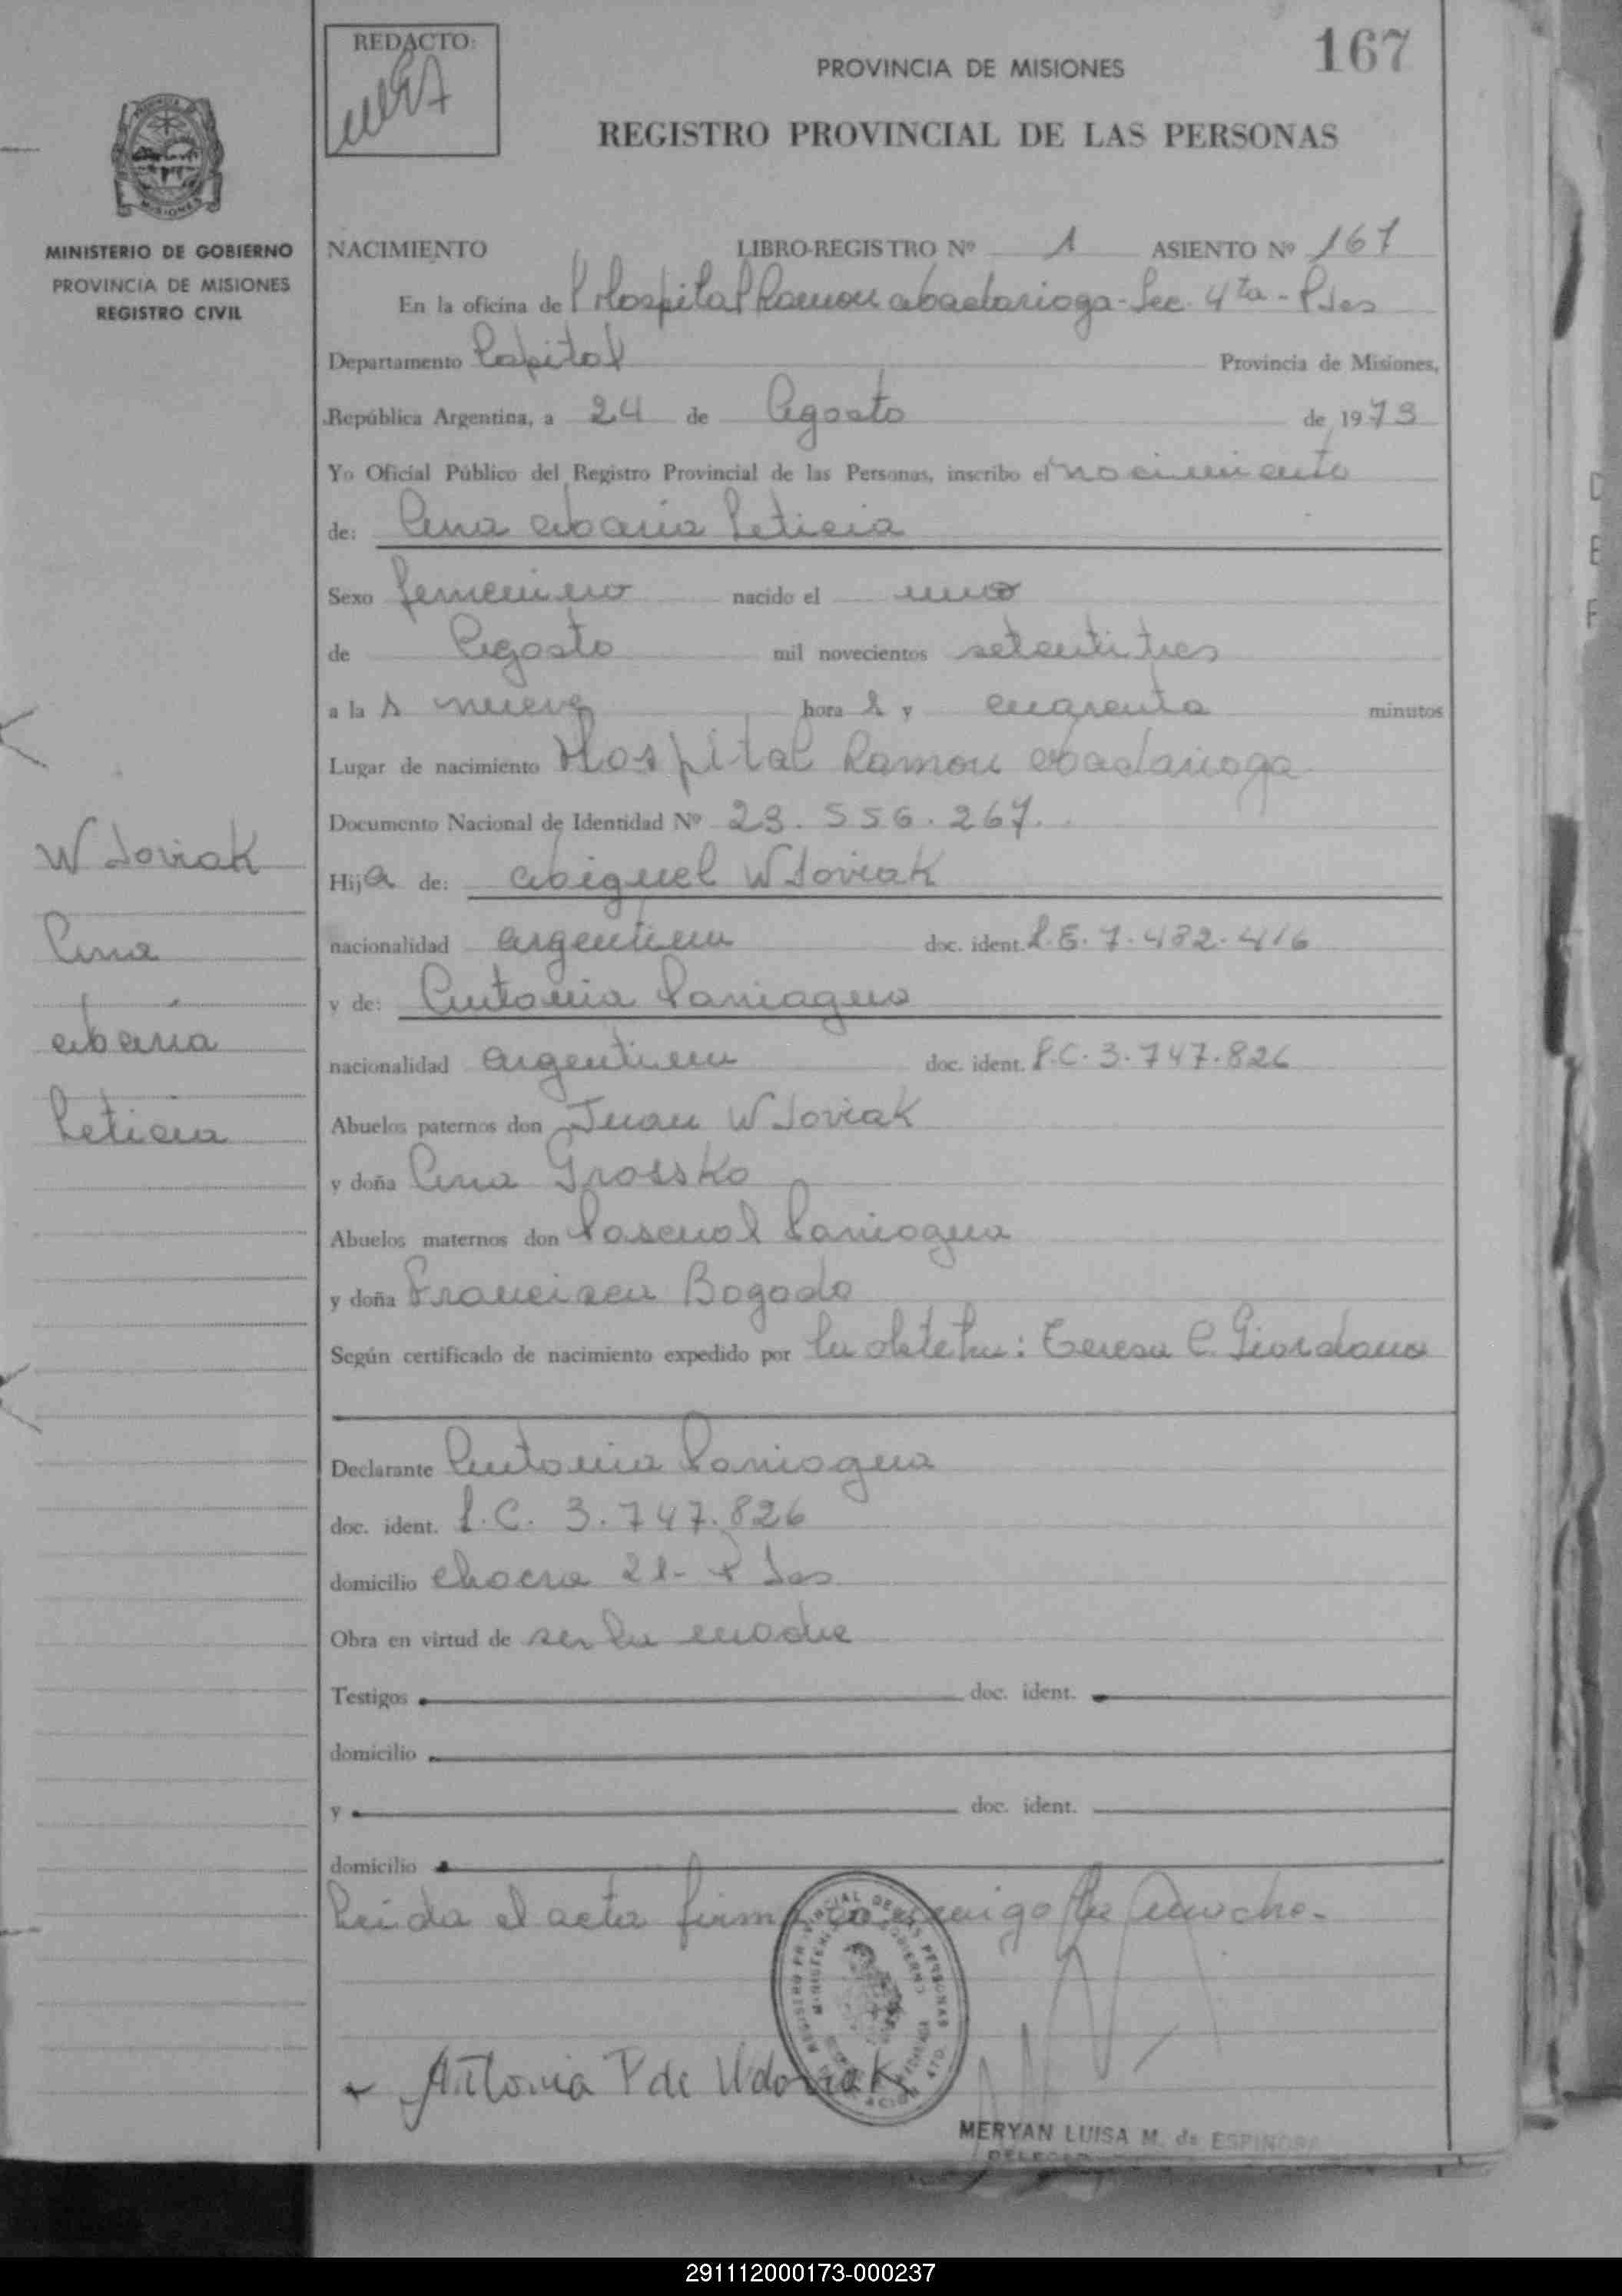 REDACTO:
PROVINCIA DE MISIONES
167
REGISTRO PROVINCIAL DE LAS PERSONAS
MISIONES
MINISTERIO DE GOBIERNO
PROVINCIA DE MISIONES
REGISTRO CIVIL
NACIMIENTO LIBRO-REGISTRO Nº 1 ASIENTO Nº 167
En la oficina de Hospital Ramon Madariaga - Sec. 4ta - Pdas
Departamento Capital Provincia de Misiones,
República Argentina, a 24 de Agosto de 1973
Yo Oficial Público del Registro Provincial de las Personas, inscribo el nacimiento
de: Ana Maria Leticia
Sexo femenino nacido el uno
de Agosto mil novecientos setentitres
a la s nueve hora s y cuarenta minutos
Lugar de nacimiento Hospital Ramon Madariaga
Documento Nacional de Identidad Nº 23.556.267.
Hija de: Miguel Wdoviak
nacionalidad argentina doc. ident. L.E. 7.482.416
y de: Antonia Paniagua
nacionalidad argentina doc. ident. L.C. 3.747.826
Abuelos paternos don Juan Wdoviak
y doña Ana Grossko
Abuelos maternos don Pascual Paniagua
y doña Francisca Bogado
Según certificado de nacimiento expedido por la obstetra: Teresa C. Giordano
Declarante Antonia Paniagua
doc. ident. L.C. 3.747.826
domicilio chacra 21- Pdas
Obra en virtud de ser la madre
Testigos doc. ident.
domicilio
y doc. ident.
domicilio
Leida el acta firma conmigo la
Antonia P de Wdoviak
MERYAN LUISA M. de ESPINOSA
Wdoviak
Ana
Maria
Leticia
291112000173-000237